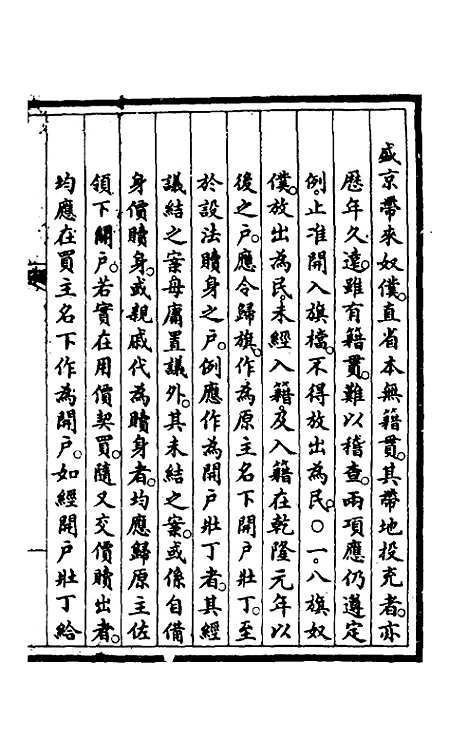 盛京帶來奴僕。直省本無籍貫。其帶地投充者。亦
歷年久遠。雖有籍貫。難以稽查。兩項應仍遵定
例。止准開入旗檔。不得放出為民。○一。八旗奴
僕。放出為民。未經入籍。及入籍在乾隆元年以
後之戶。應令歸旗。作為原主名下開戶壯丁。至
於設法贖身之戶。例應作為開戶壯丁者。其經
議結之案。毋庸置議外。其未結之案。或係自備
身價贖身。或親戚代為贖身者。均應歸原主佐
領下開戶。若實在用價契買。隨又交價贖出者。
均應在買主名下作為開戶。如經開戶壯丁給